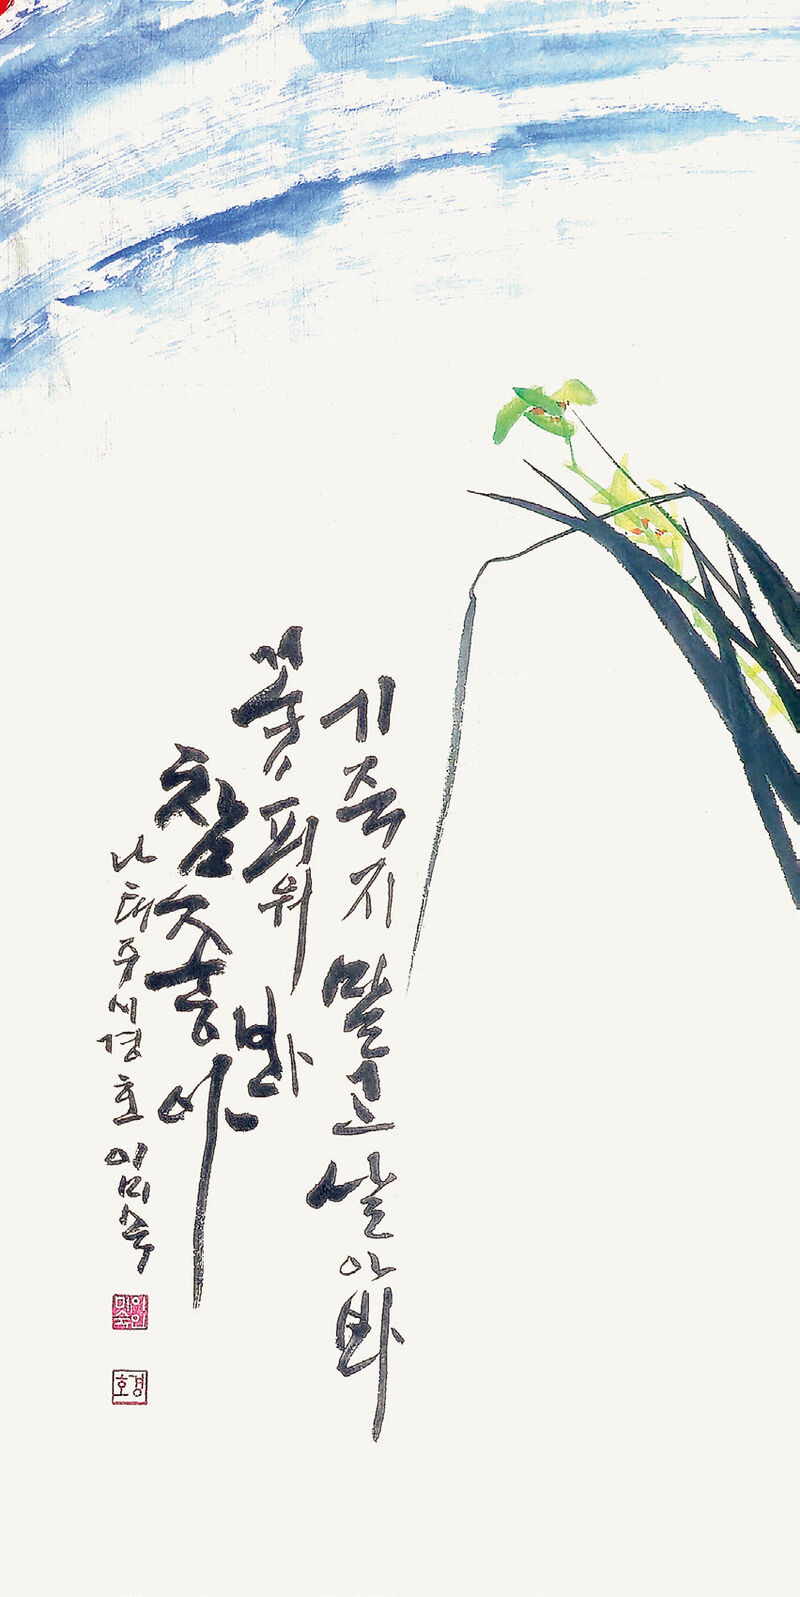 기죽지 말고 살아봐
꽃 피워 봐
참 좋아
나태주 시 경호 임미숙
경호